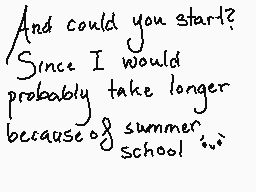 And could you start?
Since I would
probably take longer
because of summer
school